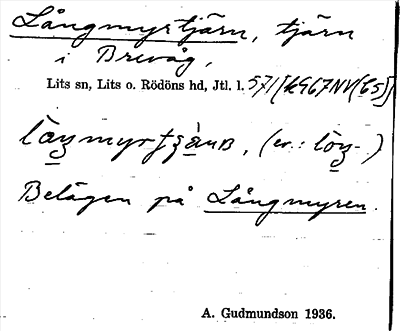 Långmyrtjärn, tjärn
i Brevåg,
Lits sn, Lits o. Rödöns hd, Jtl. l. 571[kG67NV(65)]
(ev.:
Belägen på Långmyren.
A. Gudmundson 1936.